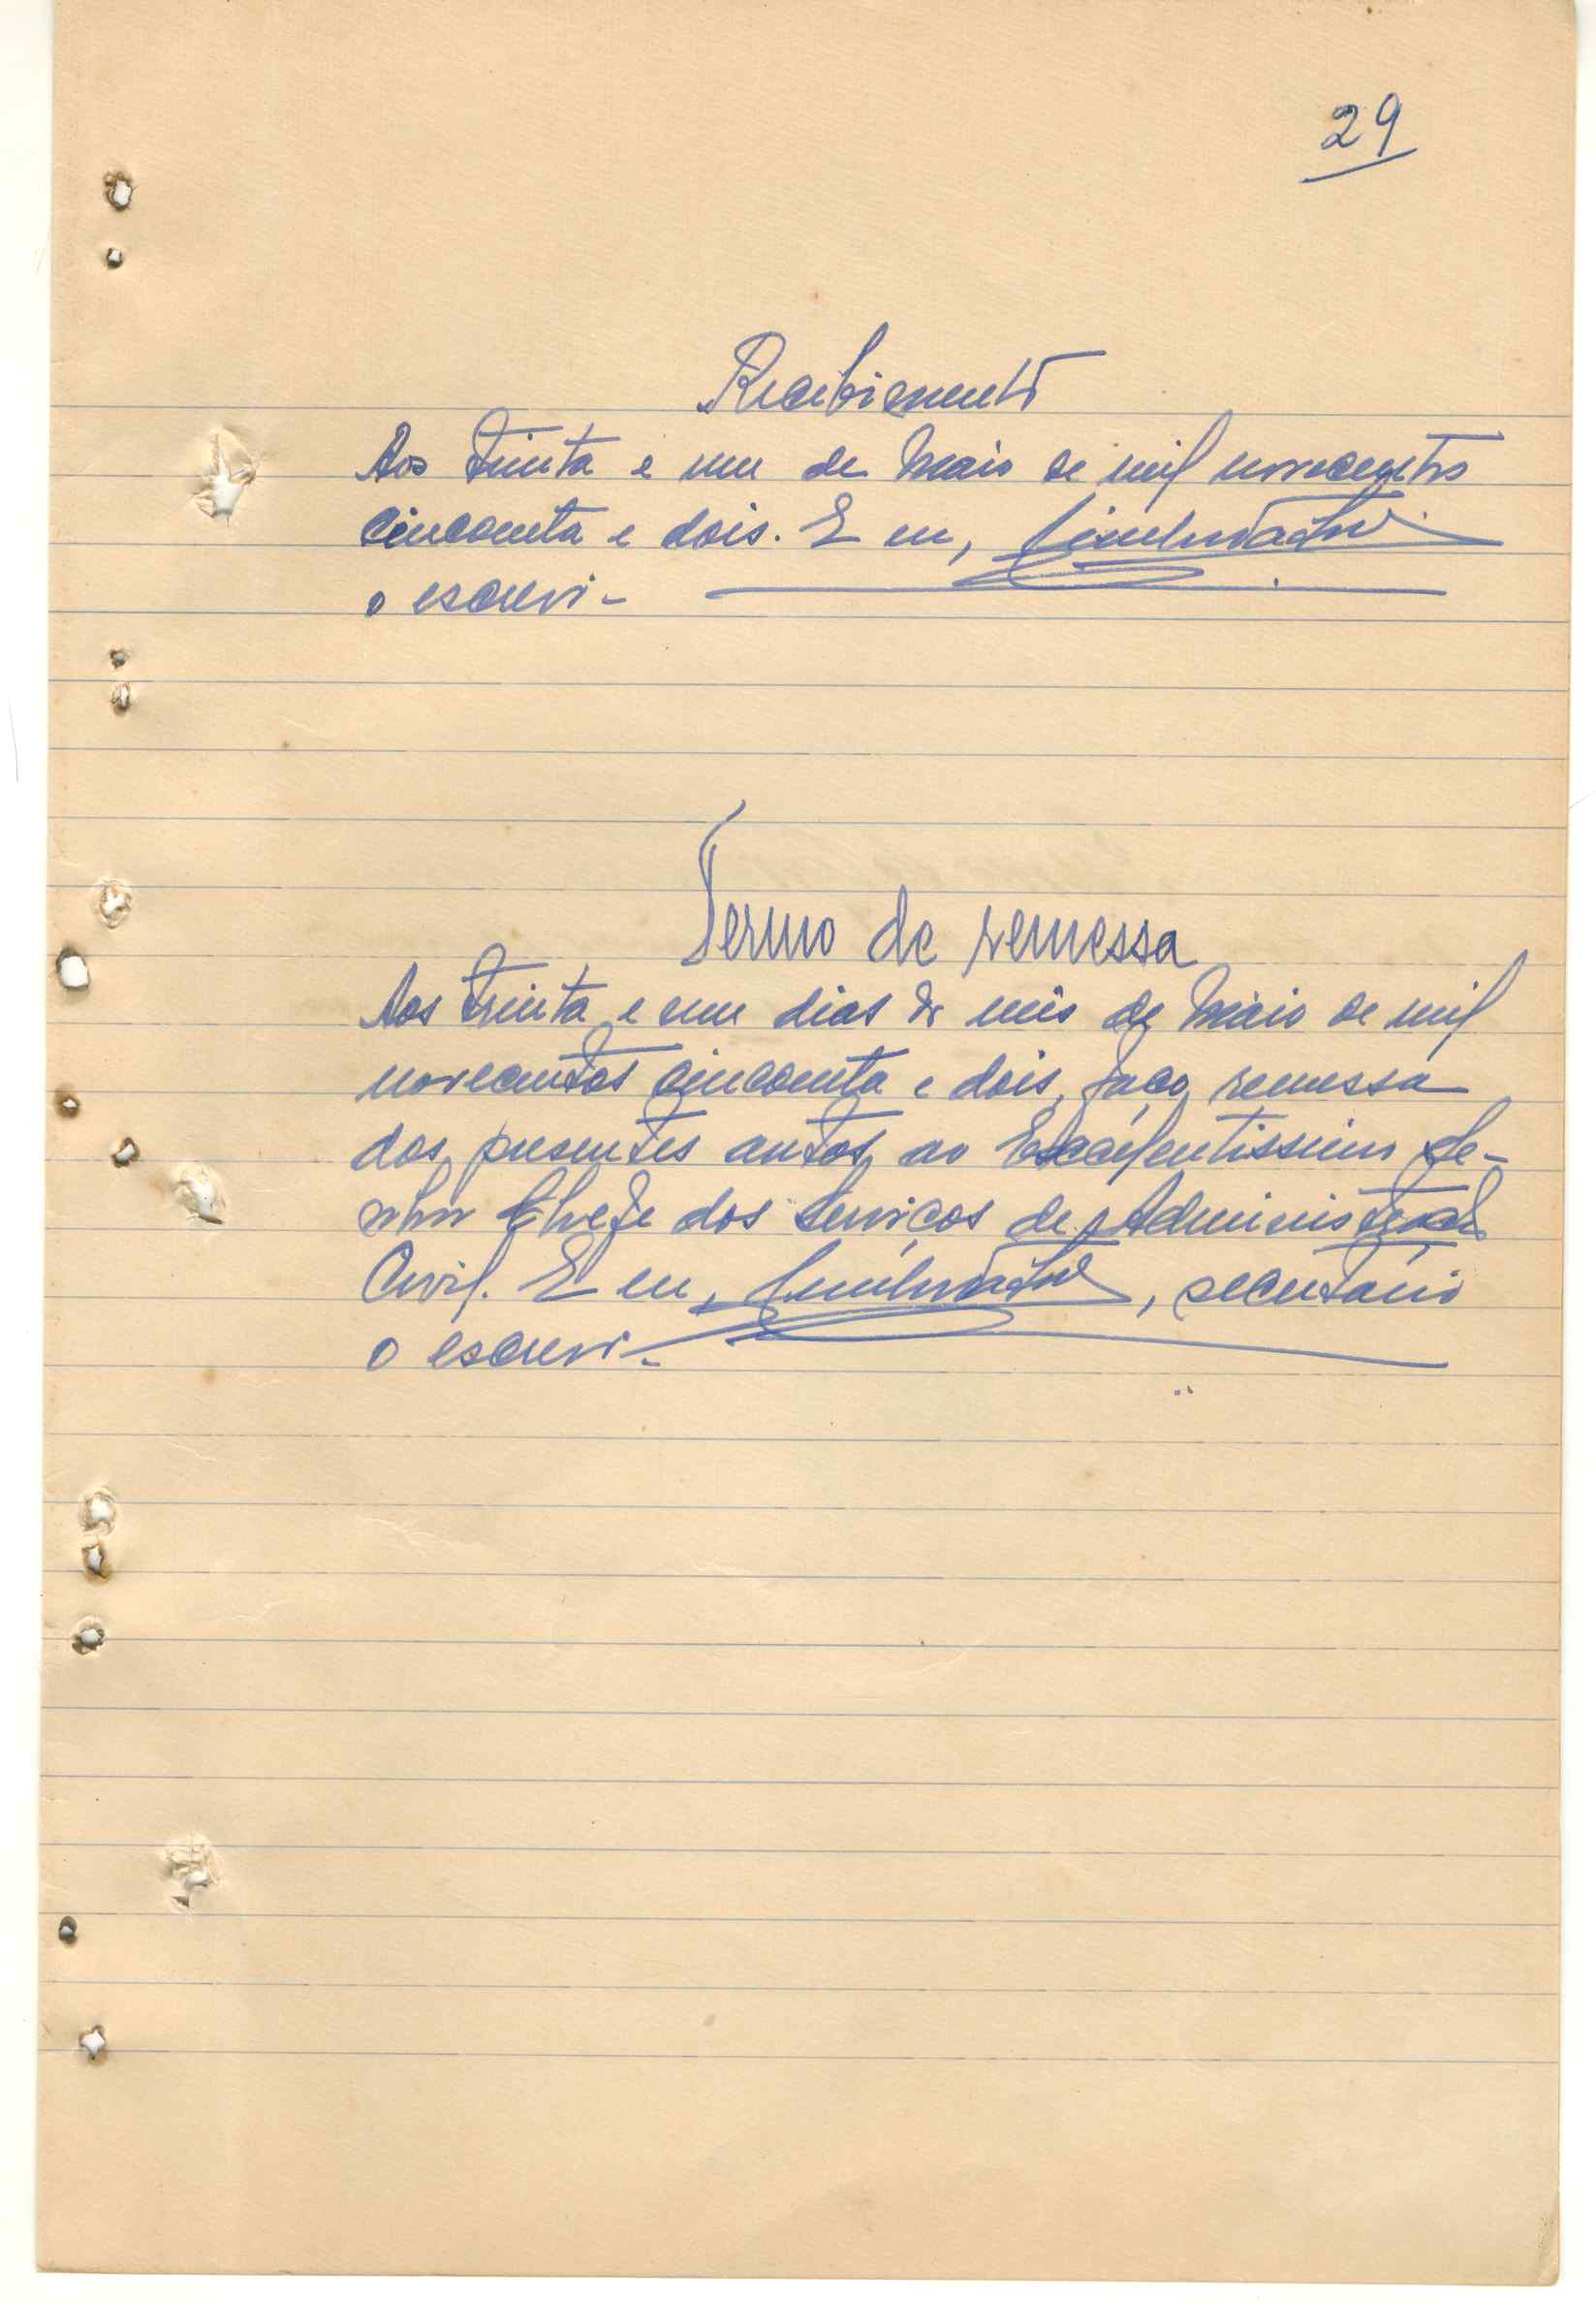 29
Recebimento
Aos trinta e um de Maio de mil novecentos
cincoenta e dois. E eu,
o escrevi -
Termo de remessa
Aos trinta e um dias do mês de Maio de mil
novecentos cincoenta e dois, faço remessa
dos presentes autos ao Excelentissimo Se-
nhor Chefe dos Serviços de Administração
Civil. E eu, , secretário
o escrevi -